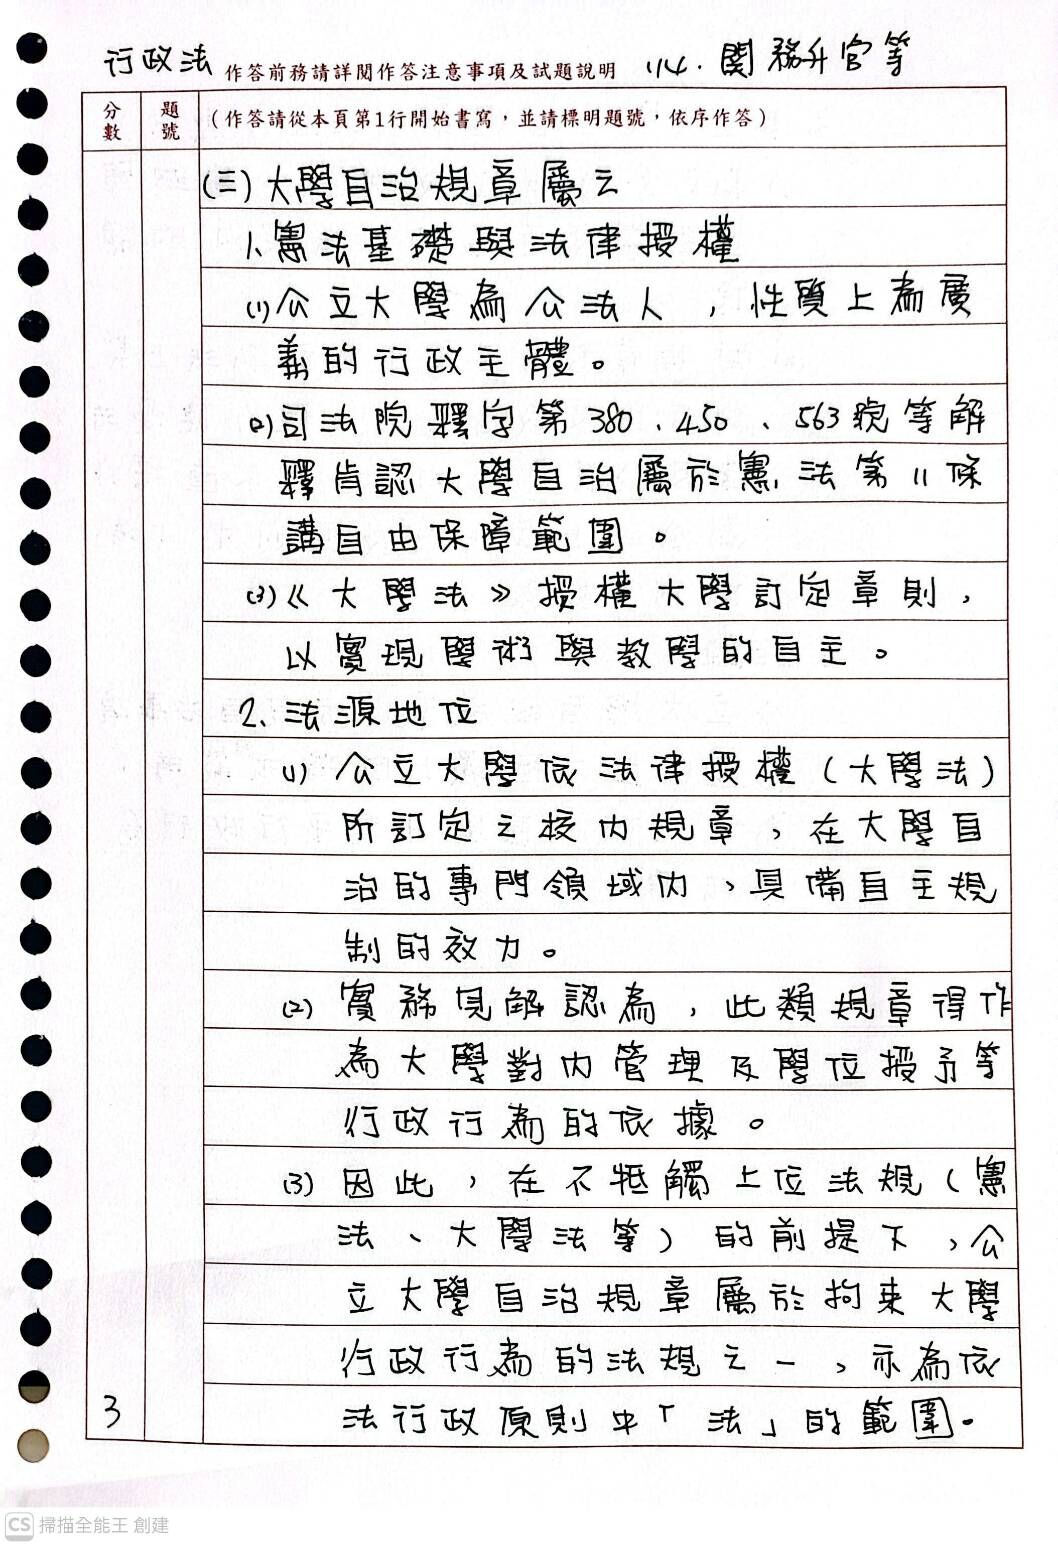 行政法 作答前務請詳閱作答注意事項及試題說明 114. 関務升官等
分數 題號 (作答請從本頁第1行開始書寫，並請標明題號，依序作答)
(三)大學自治規章屬之
1、憲法基礎與法律授權
(1)公立大學為公法人，性質上為廣
義的行政主體。
(2)司法院釋字第380、450、563號等解
釋肯認大學自治屬於憲法第11條
講自由保障範圍。
(3)《大學法》授權大學訂定章則，
以實現學術與教學的自主。
2、法源地位
(1) 公立大學依法律授權(大學法)
所訂定之校內規章，在大學自
治的專門領域內，具備自主規
制的效力。
(2) 實務見解認為，此類規章得作
為大學對內管理及學位授予等
行政行為的依據。
(3) 因此，在不牴觸上位法規(憲
法、大學法等)的前提下，公
立大學自治規章屬於拘束大學
行政行為的法規之一，亦為依
3 法行政原則中「法」的範圍。
CS 掃描全能王 創建